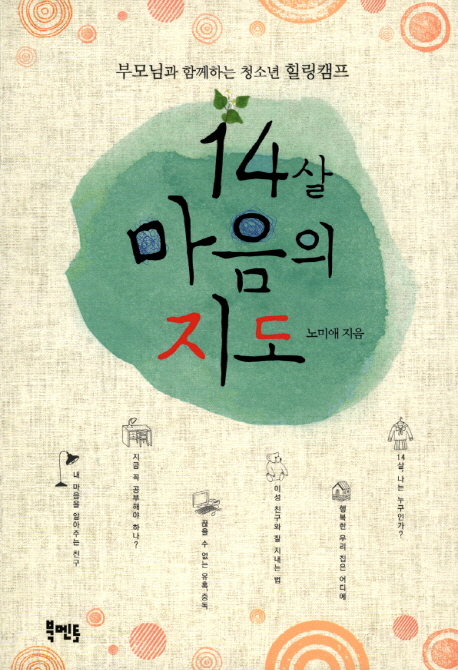 부모님과 함께하는 청소년 힐링캠프
14살
마음의
지도
노미애 지음
14살, 나는 누구인가?
행복한 우리 집은 어디에
이성 친구와 잘 지내는 법
끊을 수 없는 유혹, 중독
지금 꼭 공부해야 하나?
내 마음을 알아주는 친구
북멘토